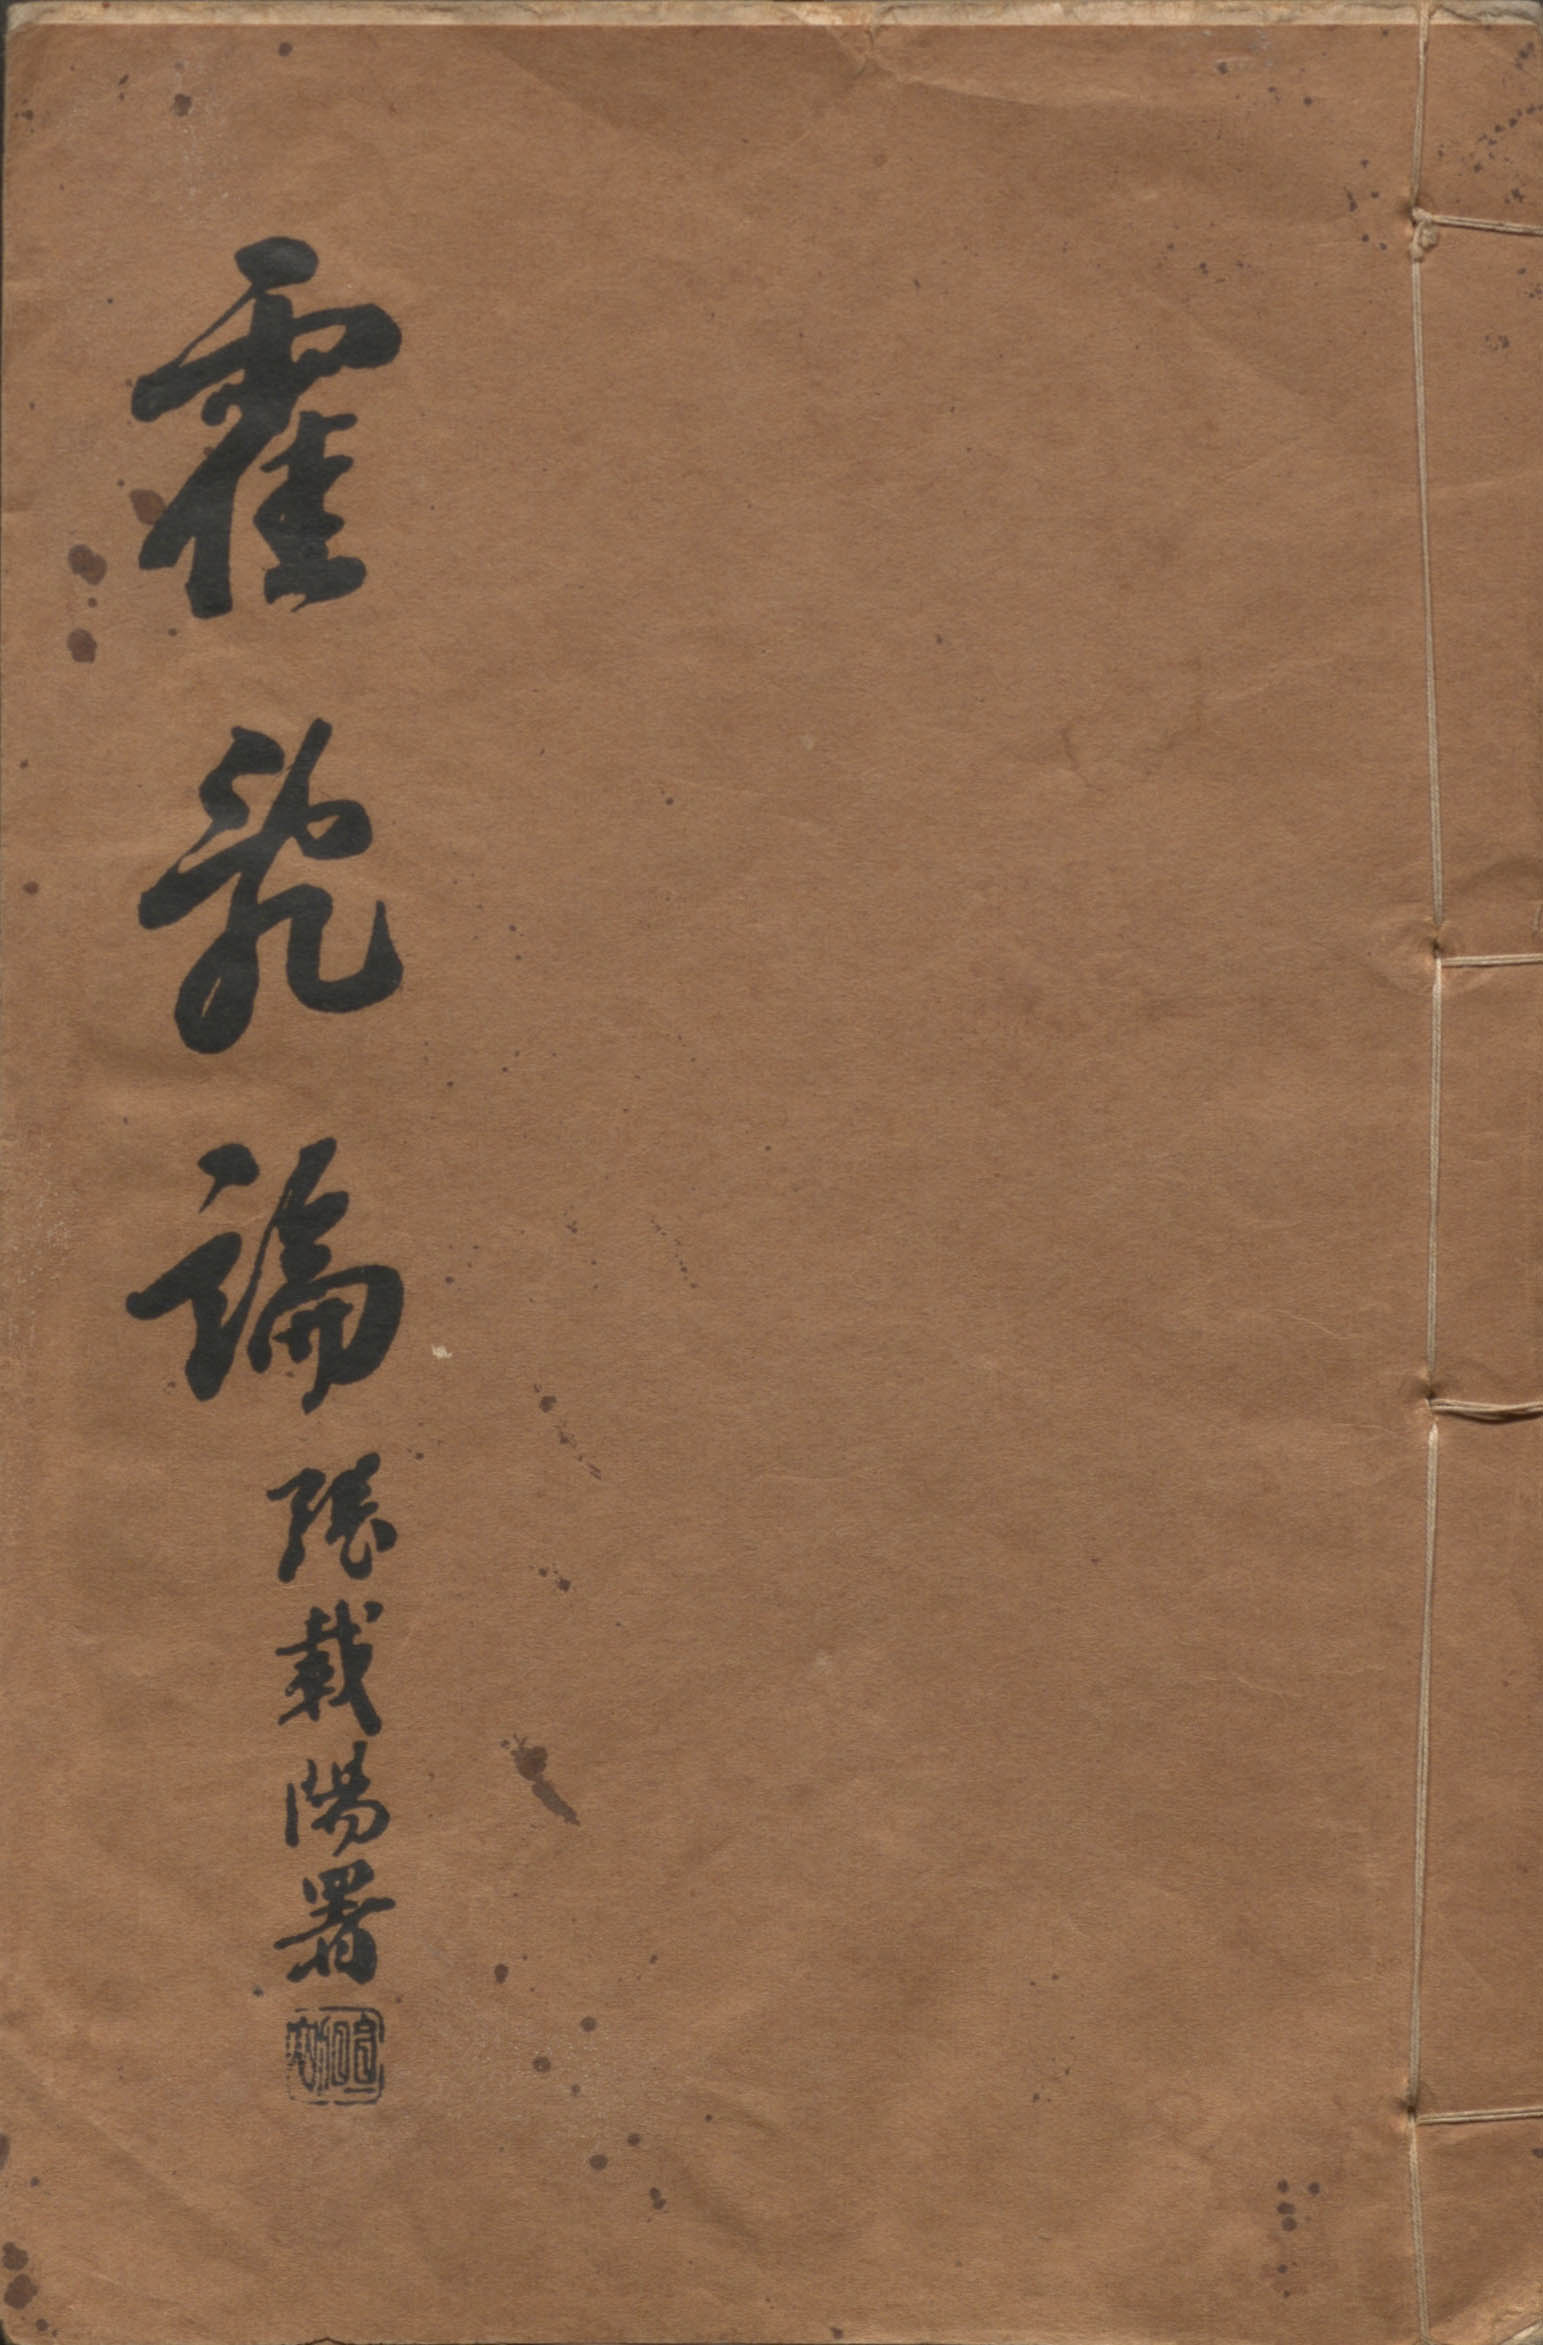 霍亂論
張載陽署